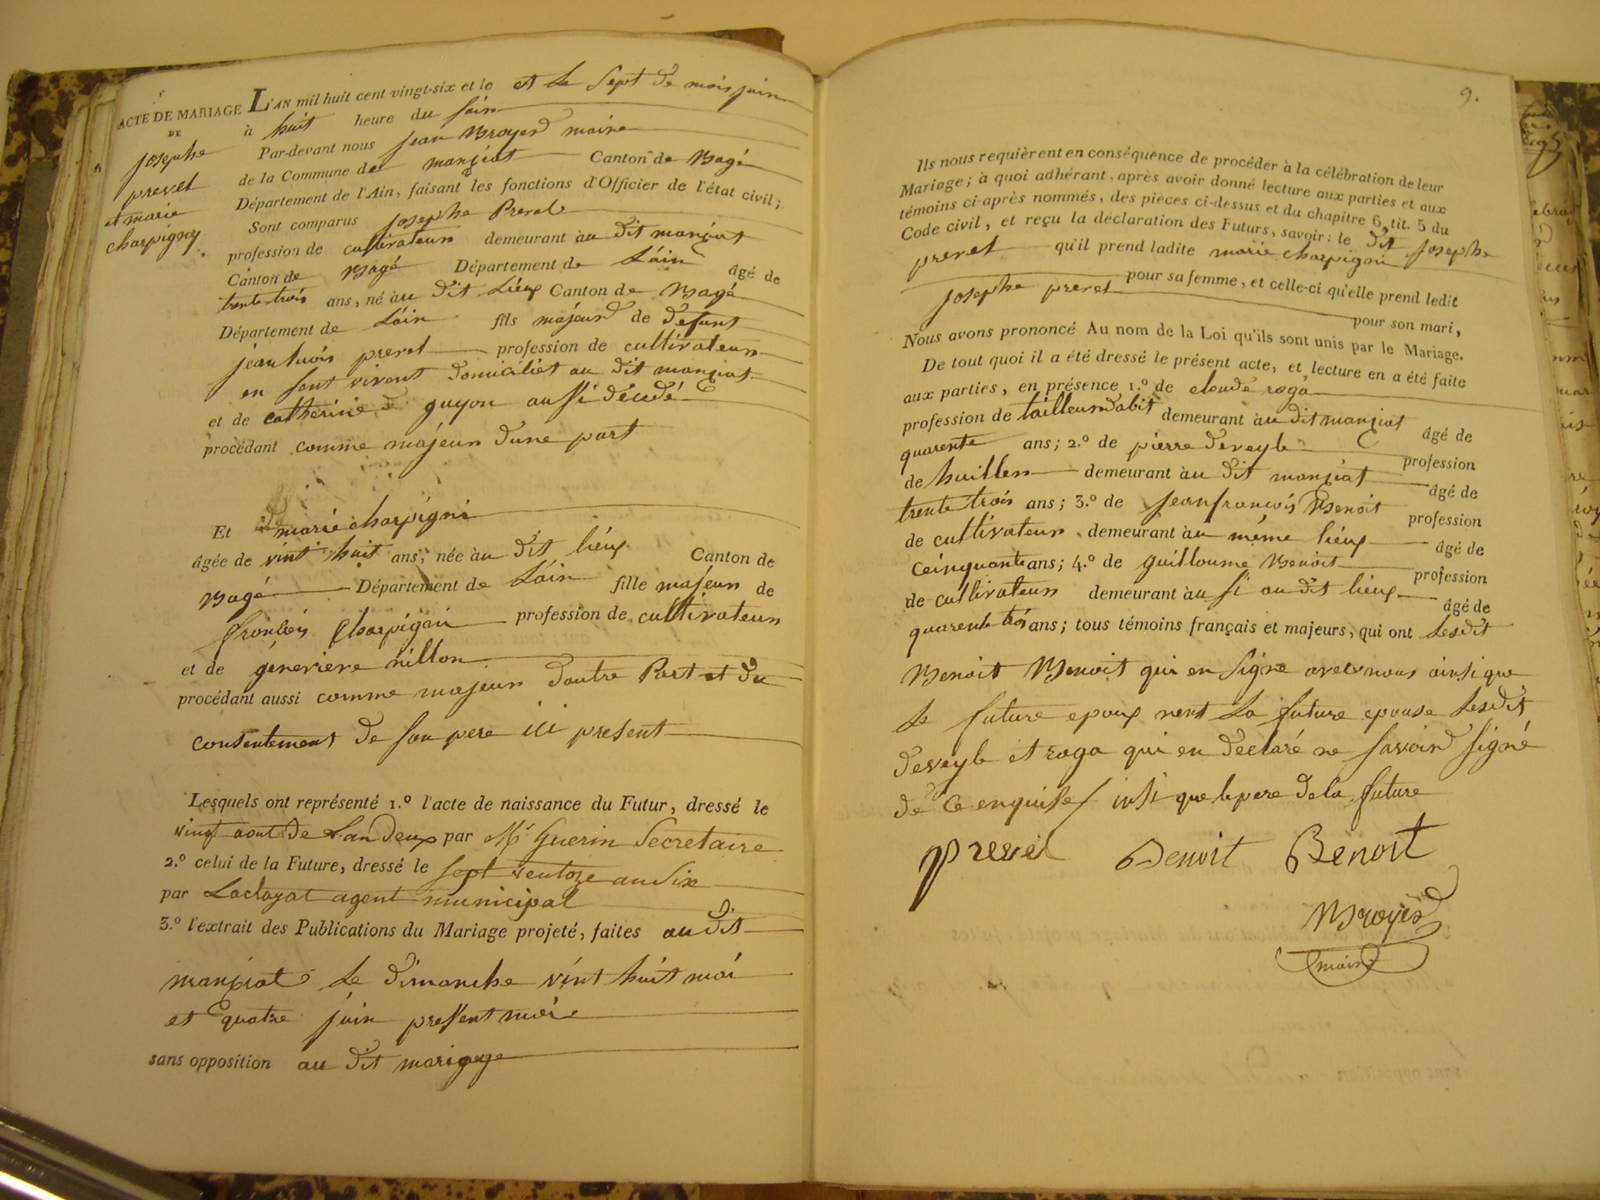 ACTE DE MARIAGE
DE
josephe
prevel
et marie
charpigny
L'AN mil huit cent vingt-six et le et le sept de mois juin
à huit heure du soir
Par-devant nous jean Broyer maire
de la Commune de manziat Canton de Bagé
Département de l'Ain, faisant les fonctions d'Officier de l'état civil;
Sont comparus josephe Prevel
profession de cultivateur demeurant au dit manziat
Canton de Bagé Département de Láin âgé de
trente trois ans, né au dit Lieux Canton de Bagé
Département de Láin fils majeur de defunt
jean prevel profession de cultivateur
en sont vivent domiciliet au dit manziat
et de catherine guyon aussi décédé
procédant comme majeur dune part
Et marie charpigni
âgée de vint huit ans, née au dit liéux Canton de
Bagé Département de Láin fille majeur de
françois Charpigni profession de cultivateur
et de génevieve nillon
procédant aussi comme majeur dautre Part et du
consentement de son pere ici present
Lesquels ont représenté 1.º l'acte de naissance du Futur, dressé le
vingt aout de Lan Deux par Mr Guerin Secretaire
2.º celui de la Future, dressé le sept ventoze an six
par agent municipal
3.º l'extrait des Publications du Mariage projeté, faites au dit
manziat le dimanche vint huit mai
et quatre juin pressent moie
sans opposition au dit mariage
9.
Ils nous requièrent en conséquence de procéder à la célébration de leur
Mariage; à quoi adhérant, après avoir donné lecture aux parties et aux
témoins ci-après nommés, des pièces ci-dessus et du chapitre 6, tit. 5 du
Code civil, et reçu la déclaration des Futurs, savoir: le dit josephe
prevel qu'il prend ladite marie charpigni
pour sa femme, et celle-ci qu'elle prend ledit
josephe prevel pour son mari,
Nous avons prononcé Au nom de la Loi qu'ils sont unis par le Mariage.
De tout quoi il a été dressé le présent acte, et lecture en a été faite
aux parties, en présence 1.º de cloude roga
profession de tailleur dabit demeurant au dit manziat âgé de
quarente ans; 2.º de pierre deveyle profession
de huillier demeurant au dit manziat âgé de
trente trois ans; 3.º de jeanfrancois Benoit profession
de cultivateur demeurant au méme liéux âgé de
ceinquante ans; 4.º de guilloume Benoit profession
de cultivateur demeurant au si au dit lieux âgé de
quarente trois ans; tous témoins français et majeurs, qui ont Lesdit
Benoit Benoit qui en signe avec nous ainsi que
le future epoux nent la future epouse Lesdit
deveyle et roga qui en déclaré ne savoir signé
de ce enquise insi que le pere de la future
prevel Benoit Benoit
Broyer
maire